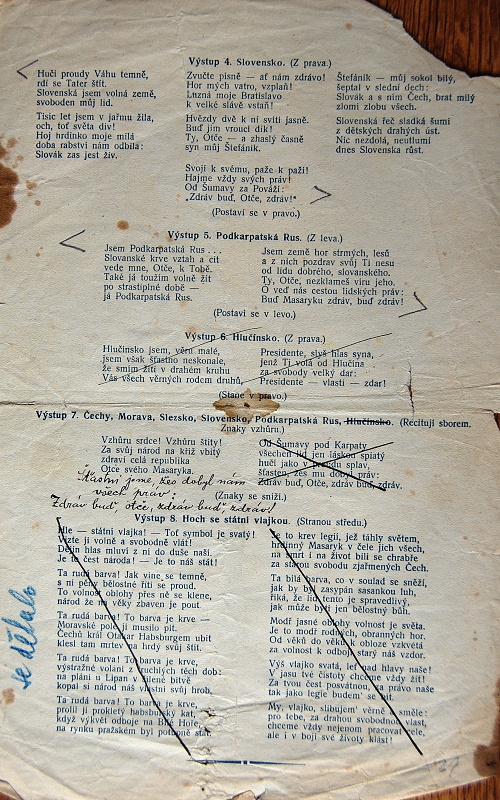 Výstup 4. Slovensko. (Z prava.)
Hučí proudy Váhu temně,
rdí se Tater štít.
Slovenská jsem volná země,
svoboden můj lid.
Tisíc let jsem v jařmu žila,
och, toť světa div!
Hoj hrdinko moje milá
doba rabství nám odbila:
Slovák zas jest živ.
Zvučte písně — ať nám zdrávo!
Hor mých vatro, vzplaň!
Luzná moje Bratislavo
k veliké slávě vstaň!
Hvězdy dvě k ní svítí jasně.
Buď jim vroucí dík!
Ty, Otče — a zhaslý časně
syn můj Štefánik.
Svoji k svému, paže k paži!
Hajme vždy svých práv!
Od Šumavy za Pováží:
„Zdráv buď, Otče, zdráv!"
(Postaví se v pravo.)
Štefánik — můj sokol bílý,
šeptal v slední dech:
Slovák a s ním Čech, brat milý
zlomí zlobu všech.
Slovenská řeč sladká šumí
z dětských drahých úst.
Nic nezdolá, neutlumí
dnes Slovenska růst.
Výstup 5. Podkarpatská Rus. (Z leva.)
Jsem Podkarpatská Rus . . .
Slovanské krve vztah a cit
vede mne, Otče, k Tobě.
Také já toužím volně žít
po strastiplné době —
já Podkarpatská Rus.
Jsem země hor strmých, lesů
a z nich pozdrav svůj Ti nesu
od lidu dobrého, slovanského.
Ty, Otče, nezklameš víru jeho.
O veď nás cestou lidských práv:
Buď Masaryku zdráv, buď zdráv!
(Postaví se v levo.)
Výstup 6. Hlučínsko. (Z prava.)
Hlučínsko jsem, věru malé,
jsem však šťastno neskonale,
že smím žíti v drahém kruhu
Vás všech věrných rodem druhů.
Presidente, slyš hlas syna,
jenž Ti volá od Hlučína
za svobody velký dar:
Presidente — vlasti — zdar!
(Stane v pravo.)
Výstup 7. Čechy, Morava, Slezsko, Slovensko, Podkarpatská Rus, Hlučínsko. (Recitují sborem.
Znaky vzhůru.)
Vzhůru srdce! Vzhůru štíty!
Za svůj národ na kříž vbitý
zdraví celá republika
Otce svého Masaryka.
Od Šumavy pod Karpaty
všechen lid jen láskou spiatý
hučí jako v proudu splav,
šťasten, žes mu dobyl práv:
Zdráv buď, Otče, zdráv buď, zdráv.
Šťastni jsme, žes dobyl nám
všech práv:
(Znaky se sníží.)
Zdráv buď, otče, zdráv buď, zdráv!
Výstup 8. Hoch se státní vlajkou. (Stranou středu.)
Hle — státní vlajka! — Toť symbol je svatý!
Vzte ji volně a svobodně vlát!
Dějin hlas mluví z ní do duše naší.
Je to čest národa! — Je to náš stát!
Ta rudá barva! Jak víne se temně,
s ní pěny bělostné řítí se proud.
To volnost oblohy přes ně se klene,
národ že ro věky zbaven je pout
Ta rudá barva! To barva je krve —
Moravské pole jí musilo pít.
Čechů král Otakar Habsburgem ubit
klesl tam mrtev na hrdý svůj štít.
Ta rudá barva! To barva je krve,
výstražné volání z truchlých těch dob:
na pláni u Lipan v šílené bitvě
kopal si národ náš vlastní svůj hrob.
Ta rudá barva! To barva je krve,
prolil ji prokletý habsburský kat,
když výkvět odboje na Bílé Hoře,
na rynku pražském byl potupně sťat.
Je to krev legií, jež táhly světem,
hrdinný Masaryk v čele jich všech,
na smrt i na život bili se chrabře
za starou svobodu zjařmených Čech.
Ta bílá barva, co v soulad se sněží,
jak by byl zasypán sasankou luh,
říká, že lid tento je spravedlivý,
jak může být jen bělostný bůh.
Modř jasné oblohy volnost je světa.
Je to modř rodných, obranných hor.
Od věků do věků k obloze vzkvétá
za volnost k odboji starý náš vzdor.
Výš vlajko svatá, leť nad hlavy naše!
V jasu tvé čistoty chceme vždy žít!
Za tvou čest posvátnou, za právo naše
tak jako legie budem' se bít.
My, vlajko, slibujem' věrně a směle:
pro tebe, za drahou svobodnou vlast,
chceme vždy nejenom pracovat cele,
ale i v boji své životy klást!
se dělalo